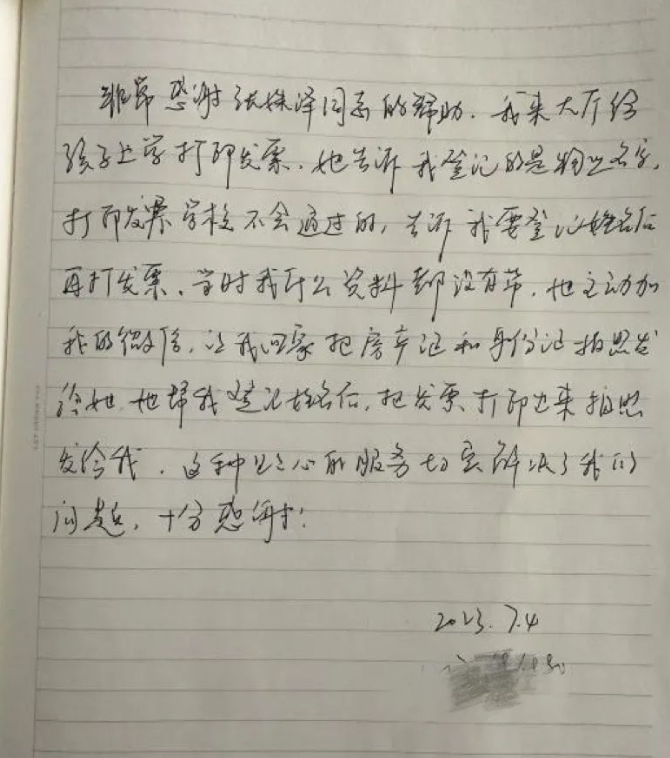 非常感谢张姝泽同志的帮助。我来大厅给
孩子上学打印发票,她告诉我登记的是物业名字,
打印发票学校不会通过的,告诉我要登记姓名后
再打发票。当时我什么资料都没有带,她主动加
我的微信,让我回家把房产证和身份证拍照发
给她,她帮我登记姓名后,把发票打印出来拍照
发给我。这种贴心的服务切实解决了我们
问题,十分感谢!
2023.7.4